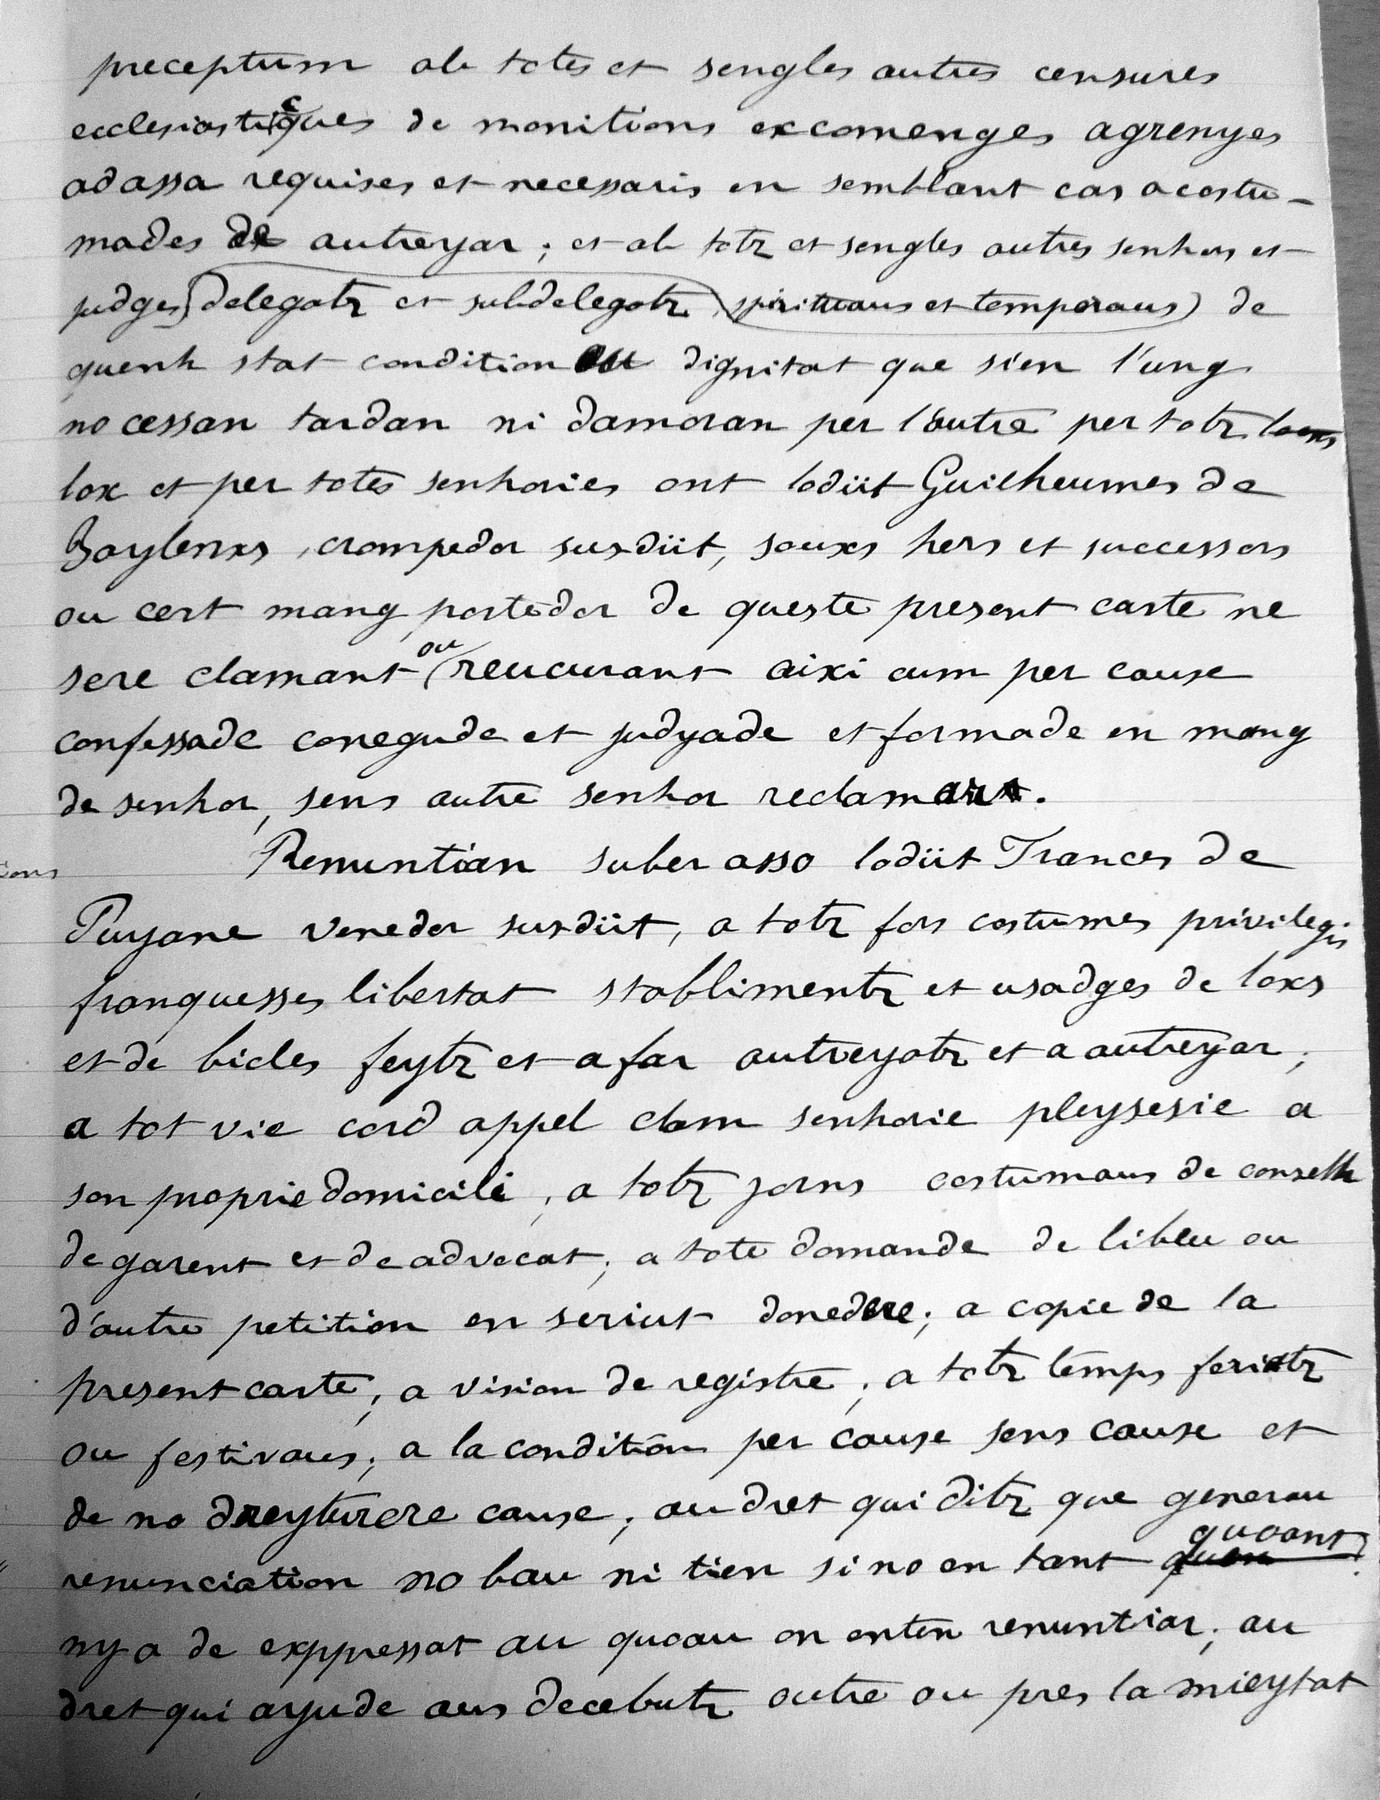 preceptum ab totes et sengles autres censures
ecclesiasticques de monitions excomenges agrenyes
adassa requises et necessaris en semblant cas acostu-
mades de autreyar ; et ab totz et sengles autres senhors et
judges, delegatz et subdelegatz (spirituaus et temporaus) de
quenh stat condition ou dignitat que sien l'ung
no cessan tardan ni damoran per l'autre per totz loxs
lox et per totes senhories ont lodiit Guilheumes de
Baylenxs, crompedor susdiit, souxs hers et successors
ou cert mang portedor de queste present carte ne
sere clamant ou reucurant aixi cum per cause
confessade conegude et judyade et formade en mang
de senhor, sens autre senhor reclamant.
Renuntian suber asso lodiit Frances de
Puyane venedor susdiit, a totz fors costumes privilegis
franquesses libertat stablimentz et usadges de loxs
et de bieles feytz et a far autreyatz et a autreyar ;
a tot vie cord appel clam senhorie pleysesie a
son proprie domicili ; a totz jorns costumaus de conselh
de garent et de advocat ; a tote domande de libeu ou
d'autre petition en scriut donedere ; a copie de la
present carte ; a vision de registre ; a totz temps feriatz
ou festivaus ; a la condition per cause sens cause et
de no dreyturere cause ; au dret qui ditz que generau
renunciation no bau ni tien si no en tant quoant
ny a de exppressat au quoau on enten renuntiar ; au
dret qui ayude aus decebutz outre ou pres la mieytat